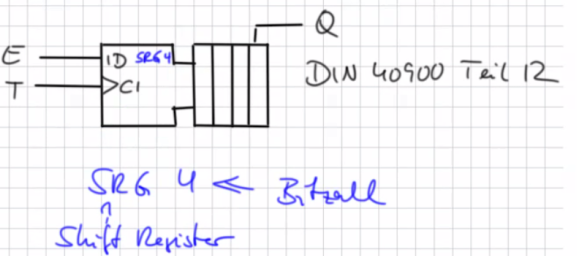 Q
E 1D SRG4
T C1
DIN 40900 Teil 12
SRG 4 ← Bitzahl
↑
Shift Register